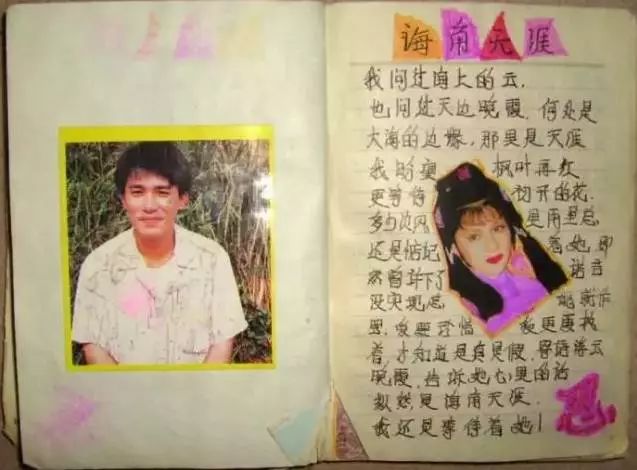 海角天涯
我问过海上的云,
也问过天边晚霞, 何处是
大海的边缘, 那里是天涯
我盼望 枫叶再红
更等待 初开的花,
多少次风 里雨里总
还是惦记 着她, 即
然曾许下了 诺言
没实现 她就在
里, 我要 我更要找
着, 才知道是真是假, 寄语浮云
晚霞, 告诉她心里的话
纵然是海角天涯,
我还是等待着她!